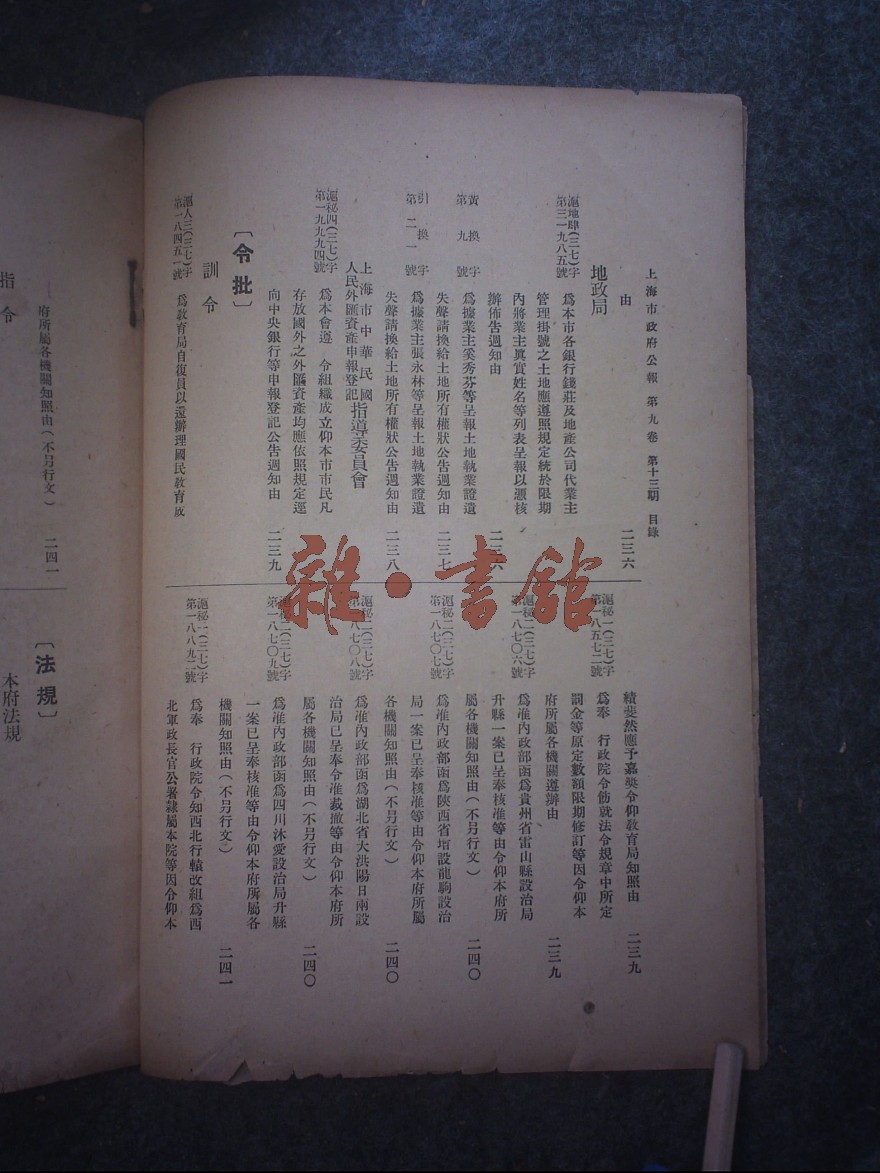 上海市政府公報 第九卷 第十三期 目錄
由 二三六
地政局
滬地肆(三七)字
第三一九八五號
為本市各銀行錢莊及地產公司代業主
管理掛號之土地應遵照規定統於限期
內將業主眞實姓名等列表呈報以憑核
辦佈告週知由 二三六
黃換字
第九號
為據業主奚秀芬等呈報土地執業證遺
失聲請換給土地所有權狀公告週知由 二三七
引換字
第二一號
為據業主張永林等呈報土地執業證遺
失聲請換給土地所有權狀公告週知由 二三八
上海市中華民國
人民外匯資產申報登記
指導委員會
滬秘四(三七)字
第一九九九四號
為本會遵 令組織成立仰本市市民凡
存放國外之外匯資產均應依照規定逕
向中央銀行等申報登記公告週知由 二三九
〔令批〕
訓令
滬人三(三七)字
第一八四五一號
為敎育局自復員以還辦理國民敎育成
績斐然應予嘉獎令仰敎育局知照由 二三九
滬秘一(三七)字
第一八五七二號
為奉 行政院令飭就法令規章中所定
罰金等原定數額限期修訂等因令仰本
府所屬各機關遵辦由 二三九
滬秘二(三七)字
第一八七〇六號
為准內政部函為貴州省雷山縣設治局
升縣一案已呈奉核准等由令仰本府所
屬各機關知照由(不另行文) 二四〇
滬秘二(三七)字
第一八七〇七號
為准內政部函為陝西省增設龍駒設治
局一案已呈奉核准等由令仰本府所屬
各機關知照由(不另行文) 二四〇
滬秘二(三七)字
第一八七〇八號
為准內政部函為湖北省大洪陽日兩設
治局已呈奉令准裁撤等由令仰本府所
屬各機關知照由(不另行文) 二四〇
滬秘二(三七)字
第一八七〇九號
為准內政部函為四川沐愛設治局升縣
一案已呈奉核准等由令仰本府所屬各
機關知照由(不另行文) 二四一
滬秘一(三七)字
第一八八九二號
為奉 行政院令知西北行轅改組為西
北軍政長官公署隸屬本院等因令仰本
府所屬各機關知照由(不另行文) 二四一
指令
〔法規〕
本府法規
雜·書館